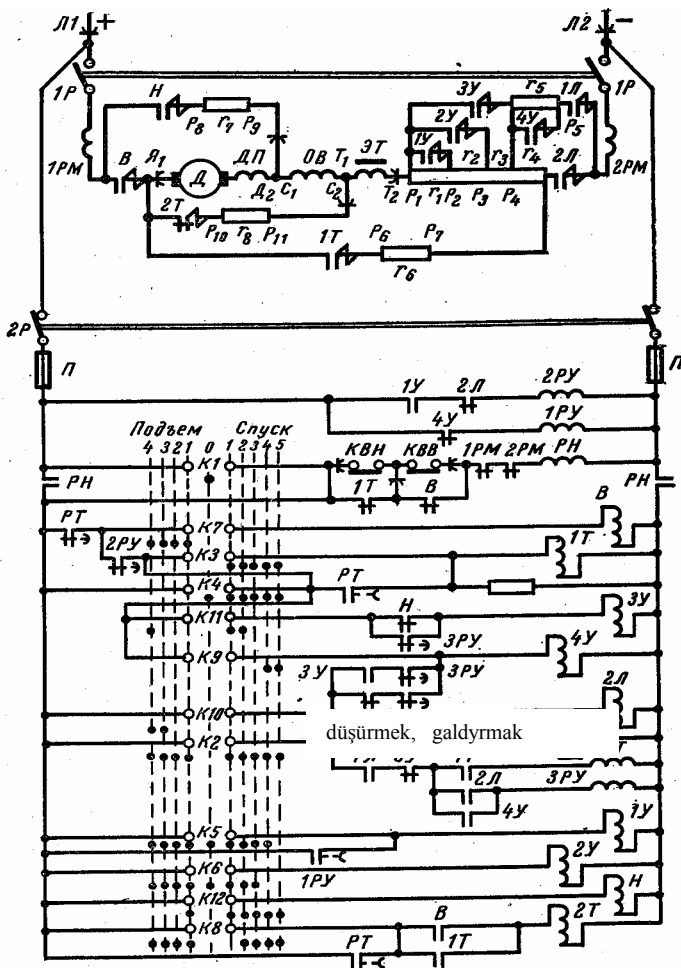 Л1 + Л2 −
1Р 3У r5 1Л 1Р
Н P8 r7 P9 2У 4У P5
1У r2 r3 r4
1РМ В Я1 Д ДП ОВ T1 ЭТ 2Л 2РМ
Д2 C1 C2 T2 P1 r1 P2 P3 P4
2Т P10 r8 P11
1Т P6 P7
r6
2Р
П П
1У 2Л 2РУ
4У 1РУ
Подъем Спуск
4 3 2 1 0 1 2 3 4 5
К1 КВН КВВ 1РМ 2РМ РН
РН 1Т В РН
РТ К7 В
2РУ К3 1Т
К4 РТ
К11 Н 3У
3РУ
К9 4У
3У 3РУ
К10 2Л
düşürmek, galdyrmak
К2
2Л 3РУ
4У
К5 1У
1РУ
К6 2У
К12 Н
К8 В 2Т
РТ 1Т